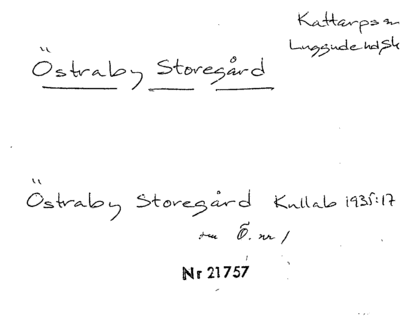 Kattarps sn
Luggude hd Sk
Östraby Storegård
Östraby Storegård Kullab 1935:17
Ö. nr 1
Nr 21757